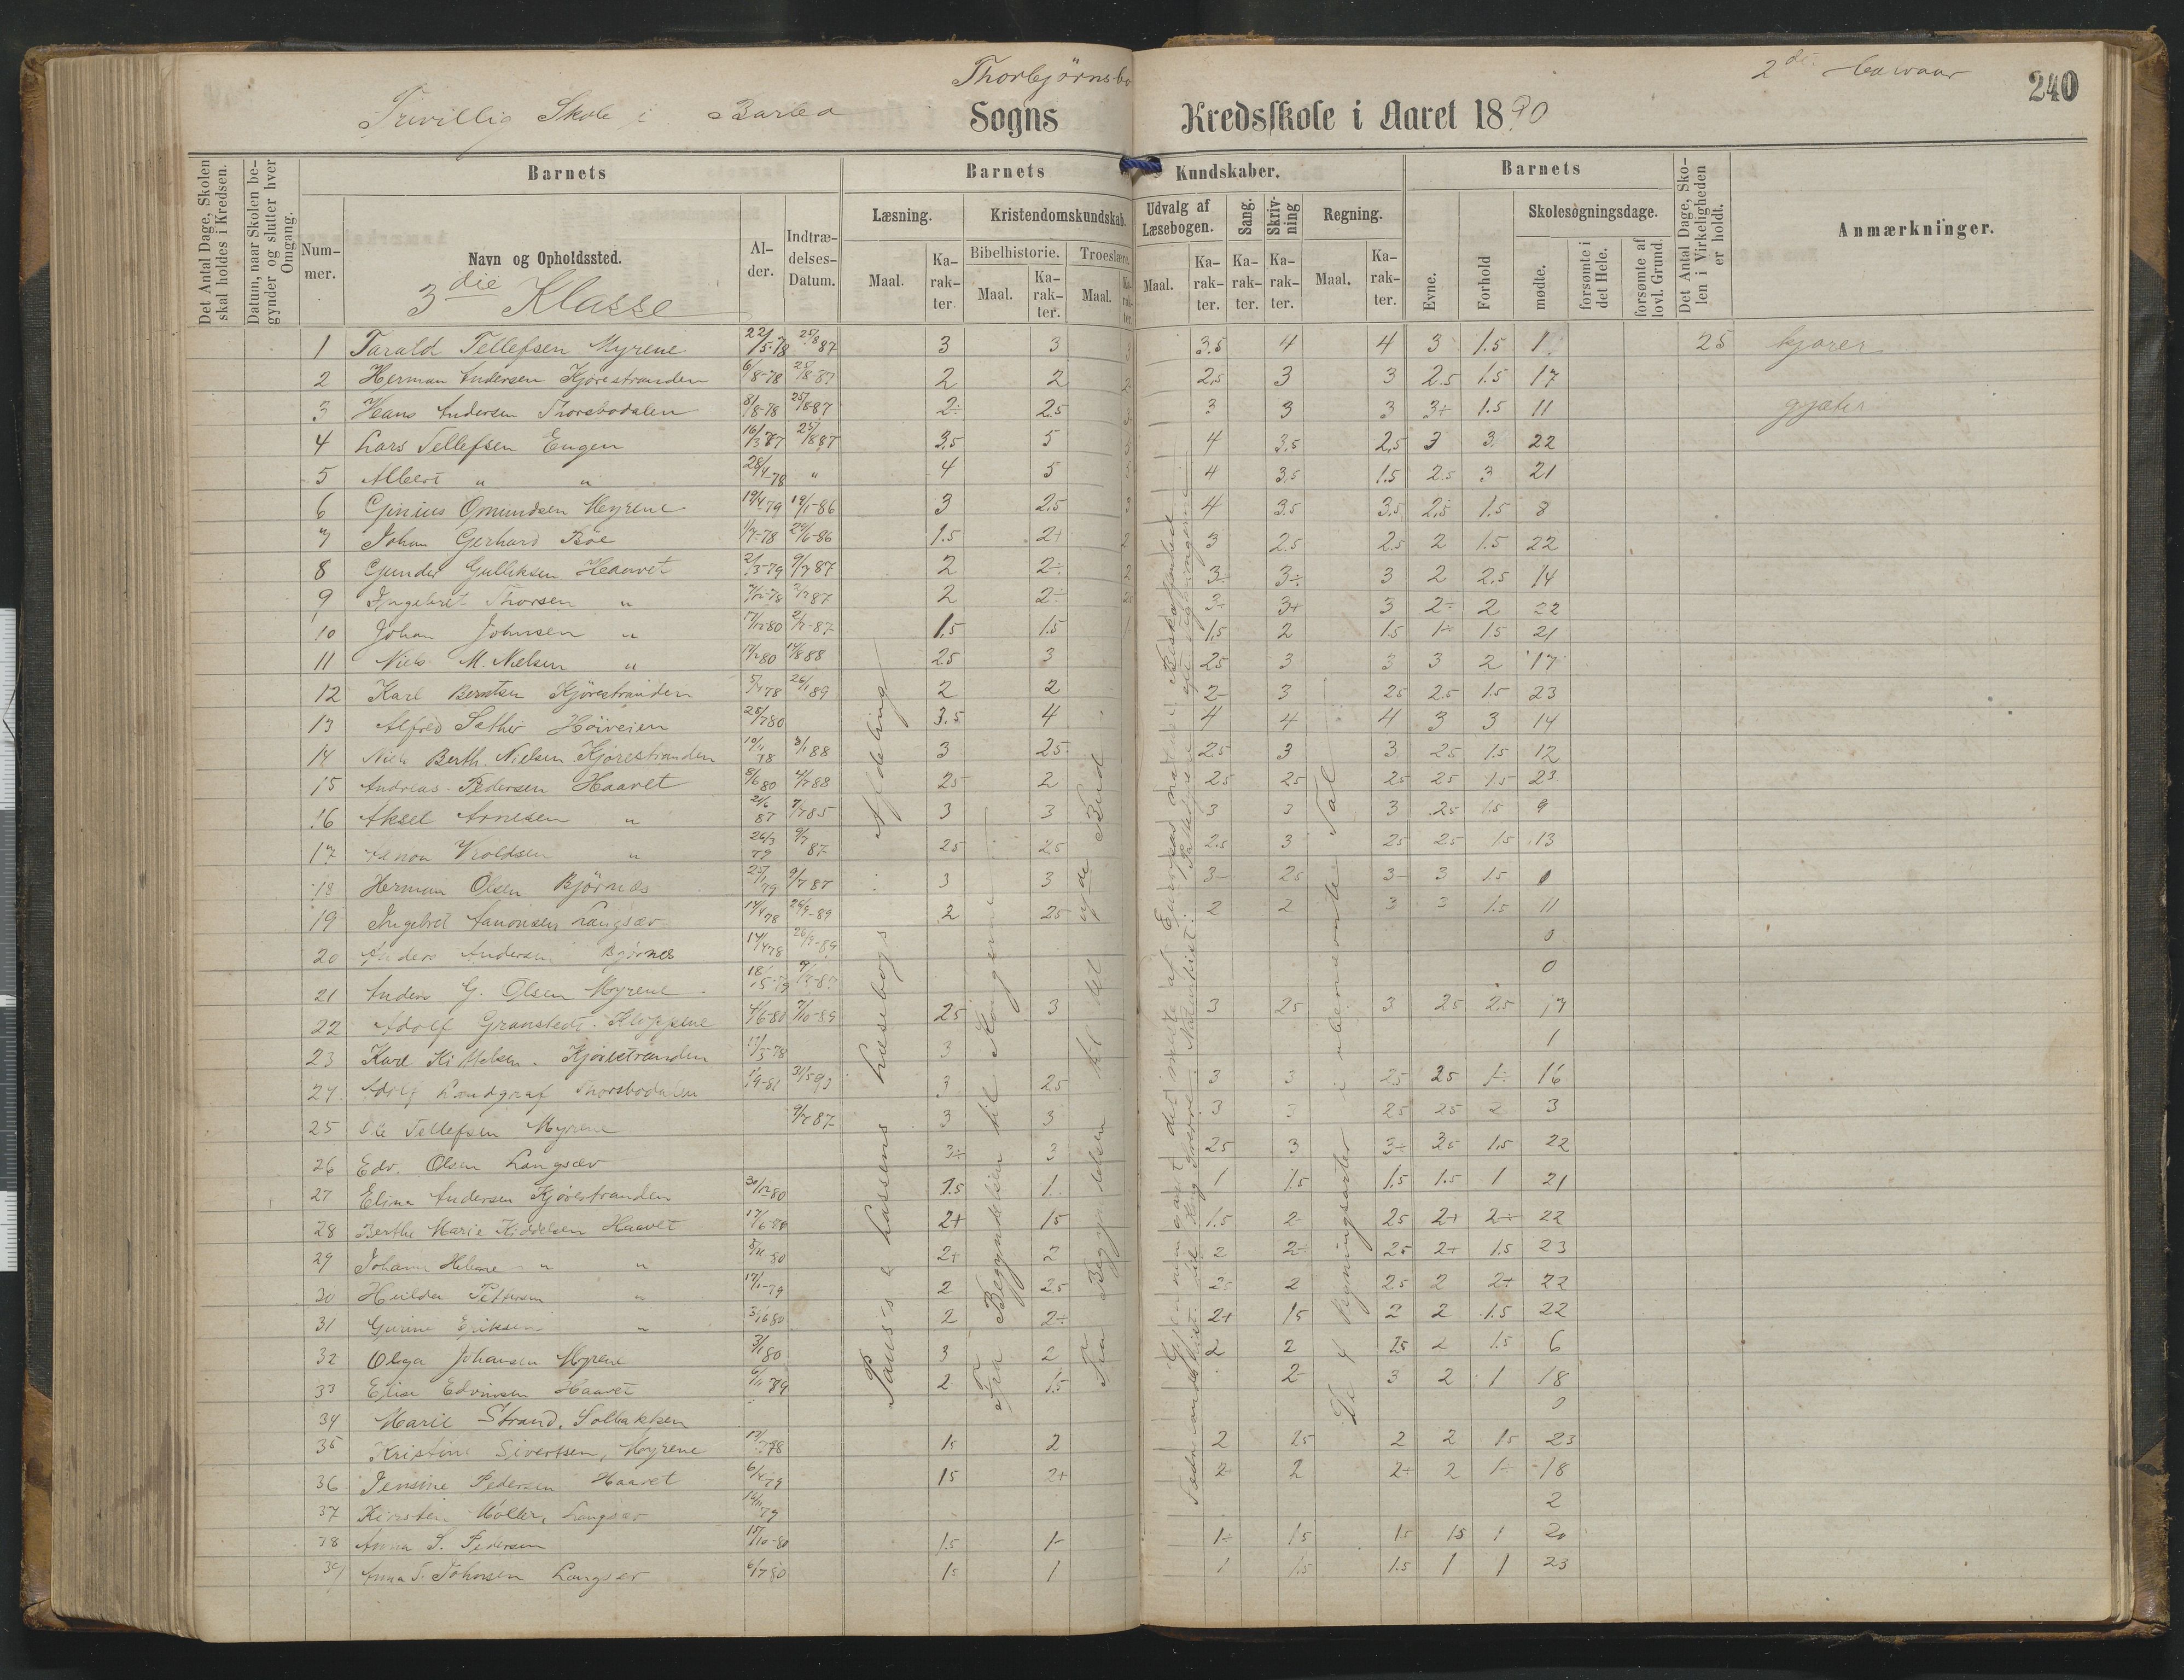 Thorbjørnsbo
2de Halvaar
240
Frivillig Skole i Barbo Sogns Kredsskole i Aaret 1890
Det Antal Dage, Skolen skal holdes i Kredsen.
Datum, naar Skolen begynder og slutter hver Omgang.
Barnets
Nummer.
Navn og Opholdssted.
Alder.
Indtrædelses-Datum.
Barnets Kundskaber.
Læsning.
Maal.
Karakter.
Kristendomskundskab.
Bibelhistorie.
Maal.
Karakter.
Troeslære.
Maal.
Karakter.
Udvalg af Læsebogen.
Maal.
Karakter.
Sang.
Karakter.
Skrivning
Karakter.
Regning.
Maal.
Karakter.
Barnets
Evne.
Forhold
Skolesøgningsdage.
mødte.
forsømte i det Hele.
forsømte af lovl. Grund.
Det Antal Dage, Skolen i Virkeligheden er holdt.
Anmærkninger.
3die Klasse
1 Tarald Tellefsen Myrene 22/5-78 25/8 87 3 3 3.5 4 4 3 1.5 1 25 kjører
2 Herman Andersen Kjørestranden 6/8-78 25/8-87 2 2 2 2.5 3 3 2.5 1.5 17
3 Hans Andersen Thorsbodalen 31/8-78 25/8 87 2÷ 2.5 3 3 3 3÷ 1.5 11 gjæter
4 Lars Tellefsen Engen 16/3 77 25/8 87 3.5 5 4 3.5 2.5 3 3 22
5 Albert " " 28/4-78 " 4 5 4 3.5 1.5 2.5 3 21
6 Ginius Omundsen Myrene 19/4-79 19/1-86 3 2.5 4 3.5 3.5 2.5 1.5 8
7 Johan Gerhard Bøe 1/7-78 29/6-86 1.5 2+ 3 2.5 2.5 2 1.5 22
8 Gunder Gulliksen Haavet 2/3-79 9/7 87 2 2÷ 3÷ 3÷ 3 2 2.5 14
9 Ingebret Thorsen " 7/12-78 2/12 87 2 2÷ 3÷ 3+ 3 2÷ 2 22
10 Johan Johnsen " 17/12 80 2/7-87 1.5 1.5 1.5 2 1.5 1÷ 1.5 21
11 Niels M. Nielsen " 17/2 80 14/8 88 25 3 25 3 3 3 2 17
12 Karl Berntsen Kjørestranden 5/4 78 26/1 89 2 2 2- 3 25 2.5 1.5 23
13 Alfred Sather Høiveien 25/7 80 3.5 4 4 4 4 3 3 14
14 Niels Berth. Nielsen Kjørestranden 10/11 78 3/1 88 3 25 25 3 3 25 1.5 12
15 Andreas Pedersen Haavet 8/6 80 4/7 88 25 2 25 25 25 25 1.5 23
16 Aksel Arnesen " 7/7 85 3 3 3 3 3 25 1.5 9
17 Vroldsen " 26/3 79 9/7 87 25 25 2.5 3 25 25 1.5 13
18 Herman Olsen Bjørnes 25/1 79 9/7 87 3 3 3- 25 3- 3 1.5 1
19 Ingebret Aanonsen Langsæv 14/4 78 26/9-89 2 25 2 2 3 3 1.5 11
20 Anders Andersen Bjørnes 0
21 Anders G. Olsen Myrene 0
22 Adolf Granstedt. Kloppene 4/6-80 7/10-89 25 3 3 25 3 25 2.5 17
23 Karl Kittelsen. Kjørestranden 11/5-78 3 1
24 Adolf Landgraf Thorsbodalen 1/9-81 31/5-90 3 25 3 3 25 25 1÷ 16
25 Ole Tellefsen Myrene 9/7 87 3 3 3 3 25 25 2 3
26 Edv. Olsen Langsæv 3÷ 3 25 3 3÷ 35 1.5 22
27 Elina Andersen Kjørestranden 30/12 80 1.5 1 1 1.5 1.5 1.5 1 21
28 Berthe Marie Kiddelsen Haavet 2+ 15 1.5 2 25 2+ 2÷ 22
29 Johann Helene " " 5/11-80 2+ 2 2 2÷ 25 2+ 1.5 23
30 Huilda Pettersen " 17/1-79 2 25 2÷ 2 2.5 2 2+ 22
31 Gurine Eriksen " 30/6 80 2 2÷ 2+ 15 2 2 1.5 22
32 Olga Johansen Myrene 3/1 80 3 2 2 2 25 2 1.5 6
33 Elise Edvinsen Haavet 6/11 79 2 1.5 2- 3 2 1 18
34 Marie Strand, Solbakken 0
35 Kristine Sivertsen, Myrene 15 2 2 25 2 2 15 23
36 Jensine Pedersen Haavet 6/4 79 15 2+ 2 2 2÷ 2 1÷ 18
37 Kirsten Møller, Langsæv 2
38 Anna S. Pedersen 15/10-80 1.5 1- 1÷ 15 15 15 1 20
39 Anna T. Johnsen Langsæv 6/7 80 15 1 1 1.5 1.5 1 1 23
Pauss & Lassens Læsebogs Afdeling
Fra Begyndelsen til Kongerne
Fra Begyndelsen til det Bud
Gjennemgaaet det meste af Europas
Fædrelandshist. til Kong Sverre. Naturhist.
De 4 Regningsarter i ubenævnte Tal